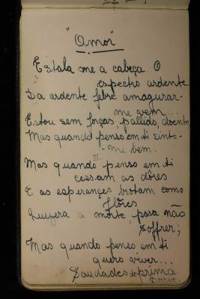 "Amor"
Estala-me a cabeça O
espectro ardente
Da ardente febre amagurar-
me vem
Estou sem forças, palido, doente
Mas quando penso em ti sinto-
me bem.
Mas quando penso em ti
cessam as dôres
E as esperanças brotam como
flôres
Quizera a morte para não
soffrer;
Mas quando penso em ti
quero viver...
Saudades de prima